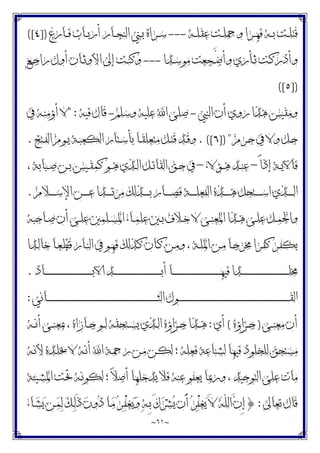 قتلت به فهرا و حملت عقله --- سراة بني النجار أرباب فارع ([٤])
وأدركت ثأري وأضجعت موسدا --- وكنت إلى الأوثان أول راجع
([٥])
ومقيس هذا روي أن النبي - صلى الله عليه وسلم - قال فيه : "لا أؤمنه في
حل ولا في حرم" ([٦]) . وقد قتل متعلقا بأستار الكعبة يوم الفتح .
فالآية إذاً - عند هؤلاء - في حق القاتل الذي هو كمقيس بن صبابة ،
الذي استحل هذه الفعلة فصار بذلك مرتدا عن الإسلام .
والحمل على هذا المعنى لا خلاف بين علماء المسلمين على أن صاحبه
يكفر كفرا مخرجا من الملة . ومن كان كذلك فهو في النار قطعا خالدا
مخلدا فيها أبد الآباد .
القول الثاني :
أن معنى ( جزاؤه ) أي : هذا جزاؤه الذي يستحقه لو جازاه ، بمعنى أنه
مستحق للخلود فيها لشناعة فعله ؛ لكن من رحمة الله أنه لا يخلده لأنه
مات على التوحيد ، وربما يعفو عنه فلا يدخلها أصلاً ؛ لكونه تحت المشيئة
قال تعالى : ﴿ إِنَّ اللَّهَ لَا يَغْفِرُ أَنْ يُشْرَكَ بِهِ وَيَغْفِرُ مَا دُونَ ذَلِكَ لِمَنْ يَشَاءُ
~١١~